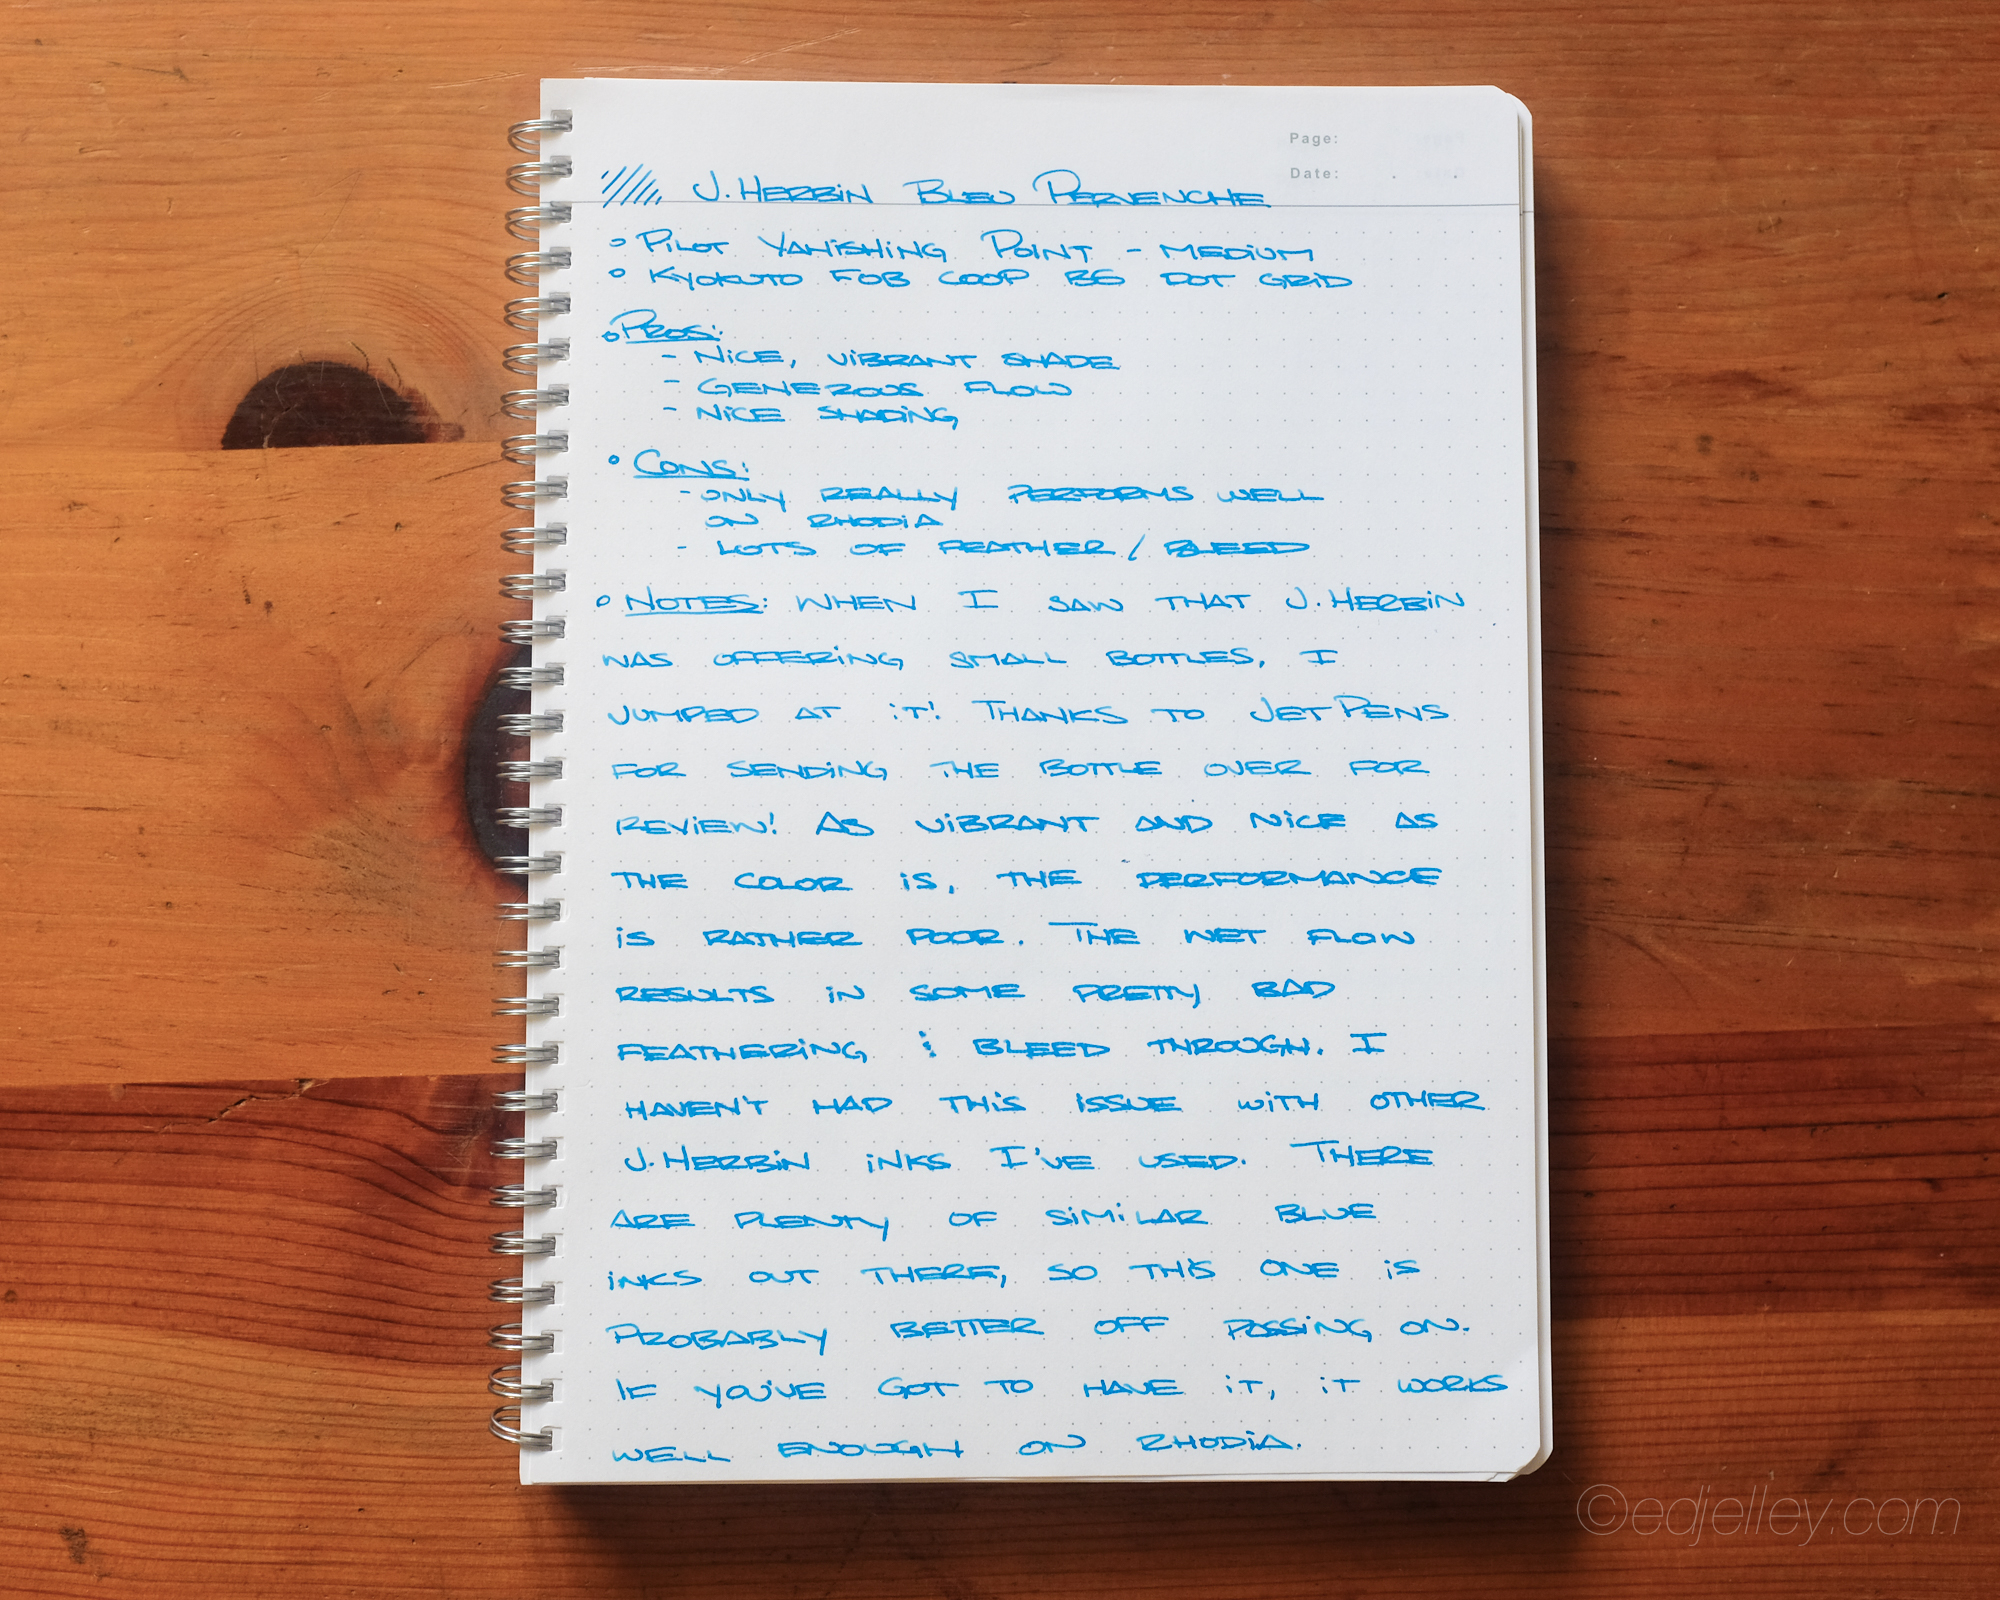 Page:
Date:
J. HERBIN BLEU PERVENCHE
PILOT VANISHING POINT - MEDIUM
KYOKUTO FOB COOP B5 DOT GRID
PROS:
- NICE, VIBRANT SHADE
- GENEROUS FLOW
- NICE SHADING
CONS:
- ONLY REALLY PERFORMS WELL
ON RHODIA
- LOTS OF FEATHER / BLEED
NOTES: WHEN I SAW THAT J. HERBIN
WAS OFFERING SMALL BOTTLES, I
JUMPED AT IT! THANKS TO JETPENS
FOR SENDING THE BOTTLE OVER FOR
REVIEW! AS VIBRANT AND NICE AS
THE COLOR IS, THE PERFORMANCE
IS RATHER POOR. THE WET FLOW
RESULTS IN SOME PRETTY BAD
FEATHERING & BLEED THROUGH. I
HAVEN'T HAD THIS ISSUE WITH OTHER
J. HERBIN INKS I'VE USED. THERE
ARE PLENTY OF SIMILAR BLUE
INKS OUT THERE, SO THIS ONE IS
PROBABLY BETTER OFF PASSING ON.
IF YOU'VE GOT TO HAVE IT, IT WORKS
WELL ENOUGH ON RHODIA.
©edjelley.com